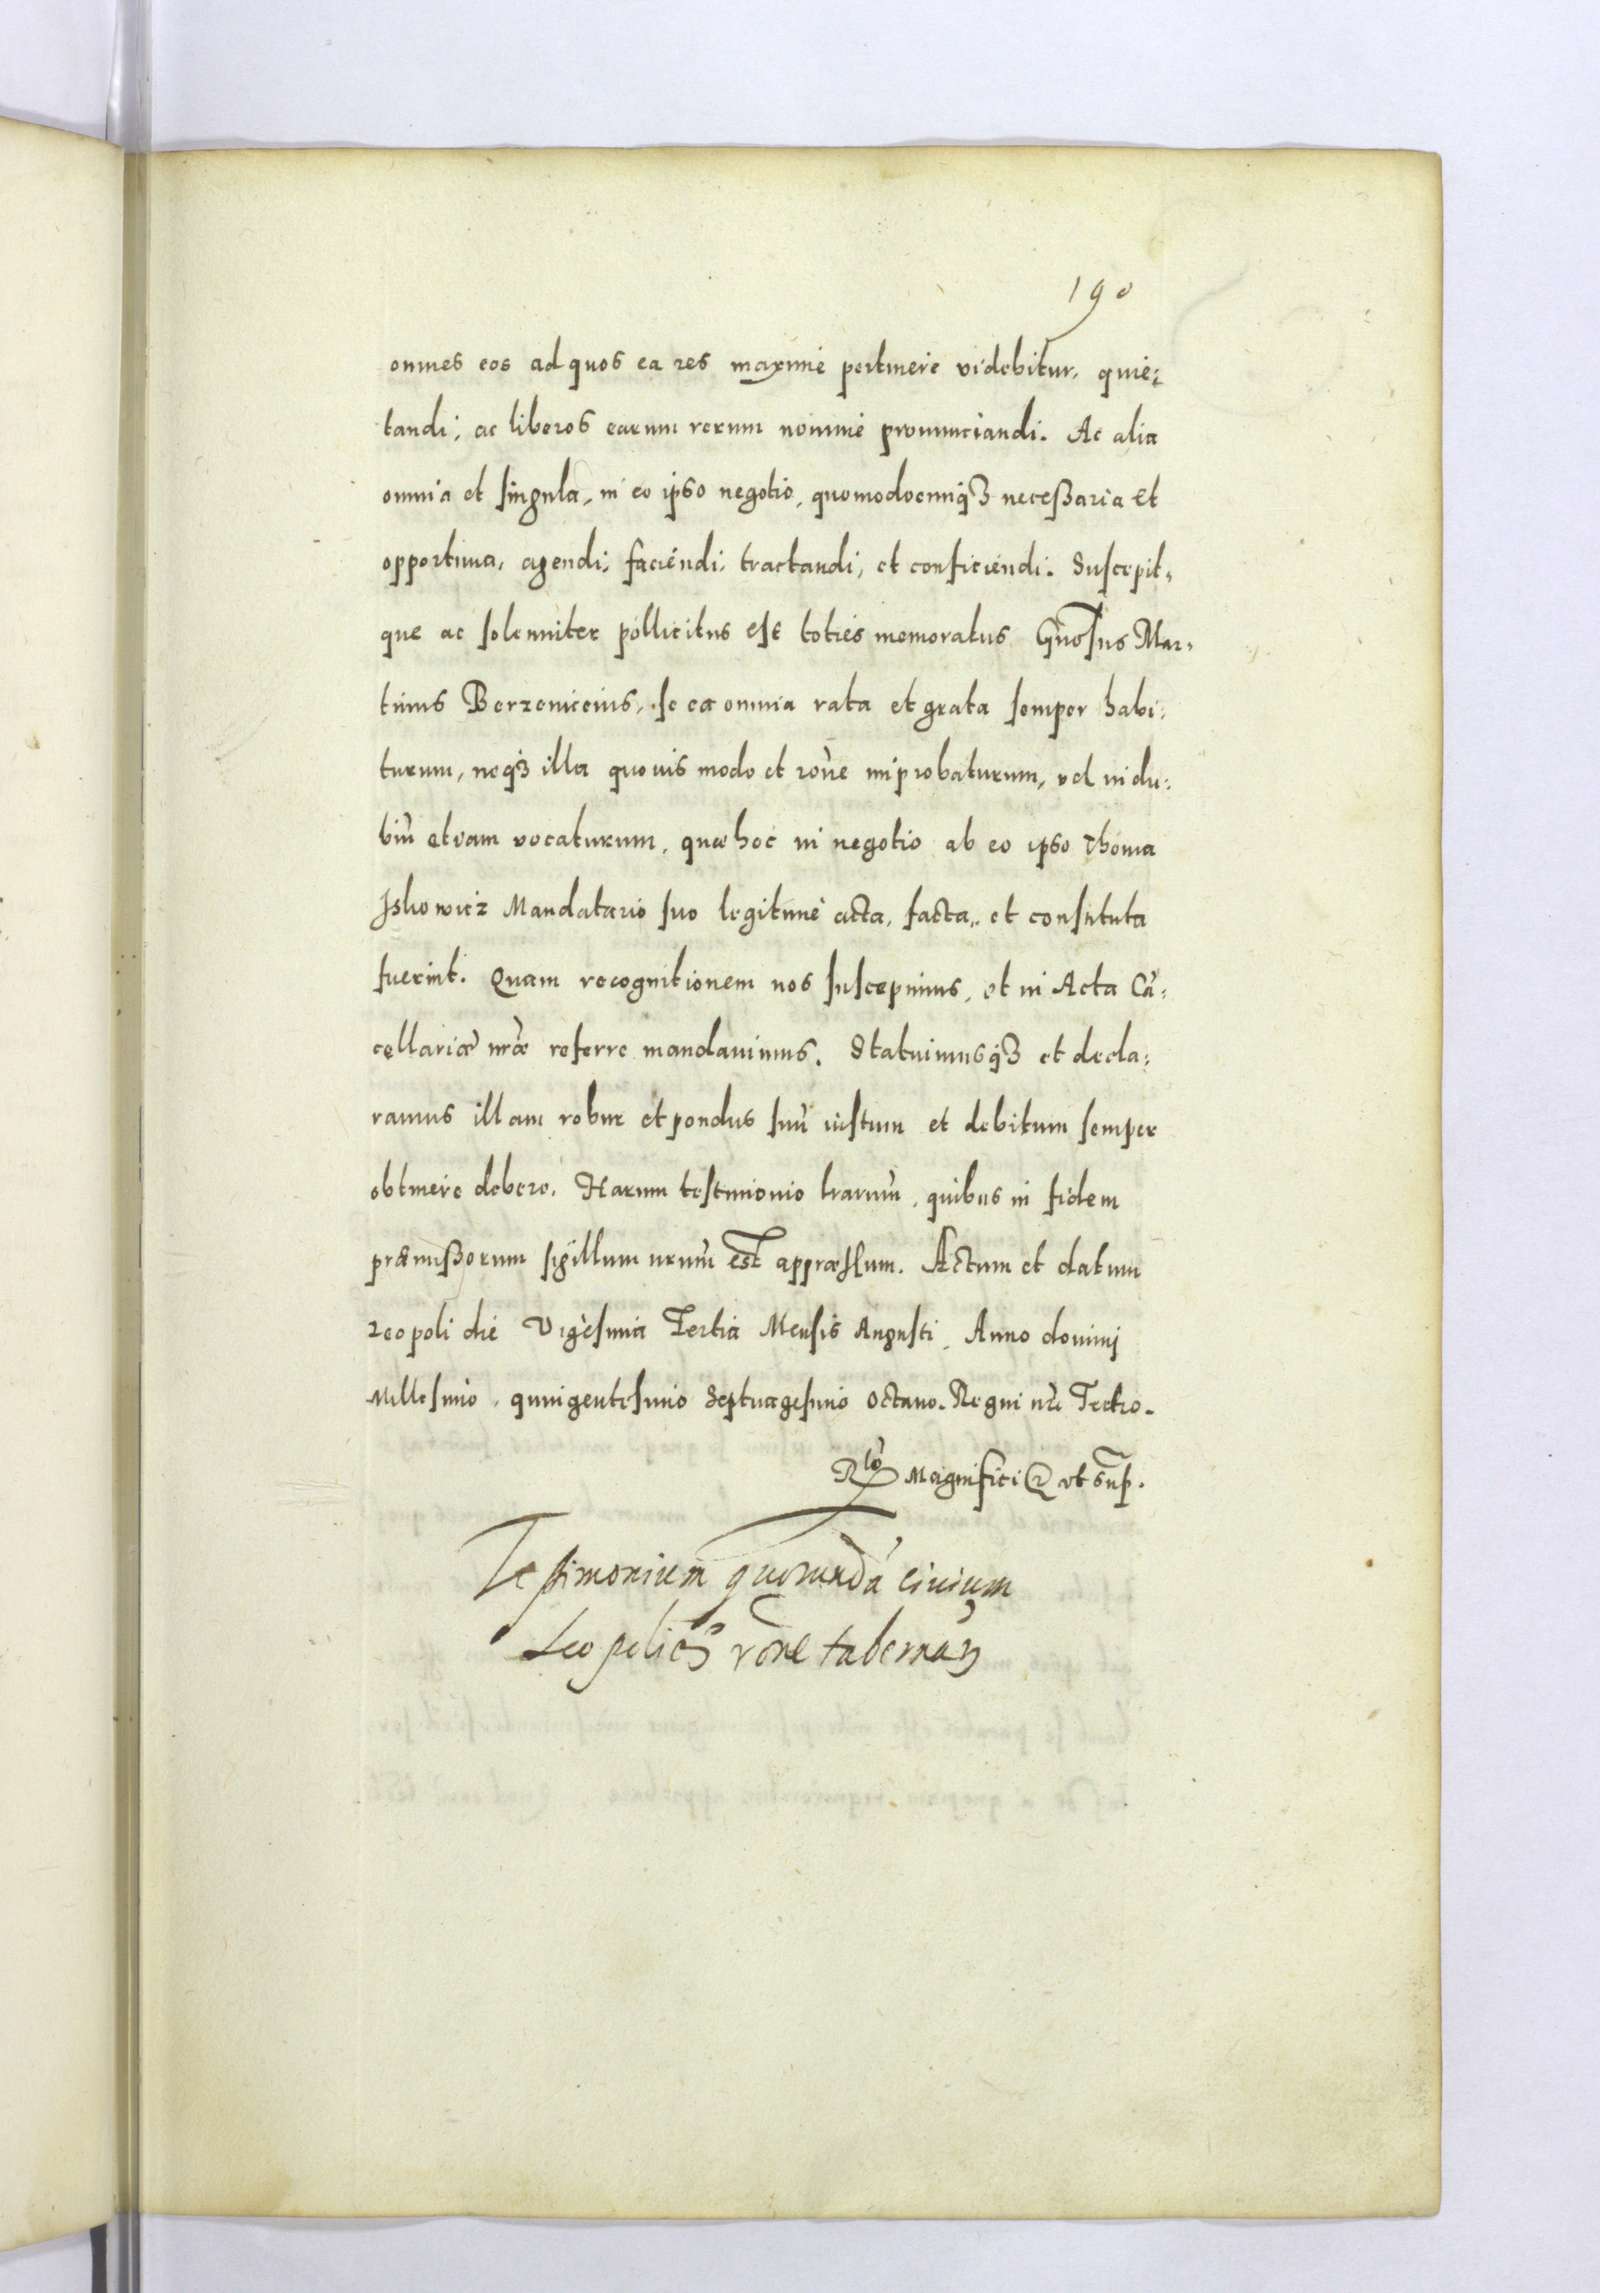 190
omnes eos ad quos ea res maxime pertinere videbitur, quie:
tandi, ac liberos earum rerum nomine pronunciandi. Ac alia
omnia et singula, in eo ipso negotio, quomodocunq3 necessaria et
opportuna, agendi, faciendi, tractandi, et conficiendi. Suscepit,
que ac solenniter pollicitus est toties memoratus Gn̄osus Mar,
tinus Berzeniceius, se ea omnia rata et grata semper habi:
turum, neq3 illa quovis modo et roñe improbaturum, vel in du:
biũ etiam vocaturum, quæ hoc in negotio ab eo ipso Thoma
Iskowicz Mandatario suo legitime acta, facta, et constituta
fuerint. Quam recognitionem nos suscepimus, et in Acta Cã:
cellariæ nr̃æ referre mandavimus. Statuimusq3 et decla:
ramus illam robur et pondus suũ iustum et debitum semper
obtinere debere. Harum testimonio lrarum̃, quibus in fidem
præmissorum sigillum nrum̃ est appræssum. Actum et datum
Leopoli die Vigesima Tertia Mensis Augusti, Anno domini
Millesimo, quingentesimo Septuagesimo octavo. Regni nr̃i Tertio.
Rlõ Magnifici @ ut sup̃.
Testimonium quorundã civium
Leopolieñ roñe tabernaȝ